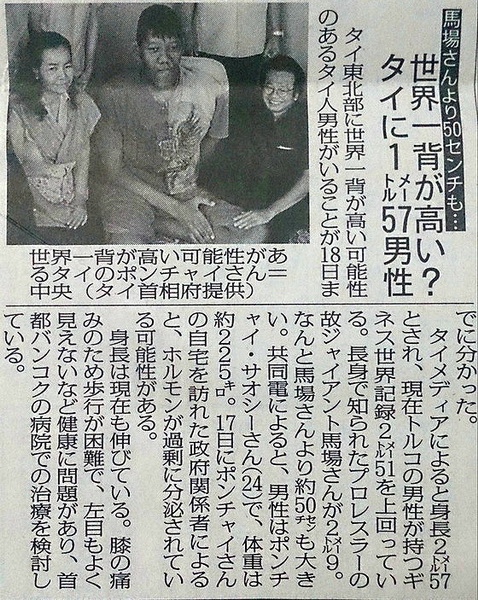 馬場さんより50センチも…
世界一背が高い?
タイに1㍍57男性
タイ東北部に世界一背が高い可能性
のあるタイ人男性がいることが18日ま
でに分かった。
タイメディアによると身長2㍍57
とされ、現在トルコの男性が持つギ
ネス世界記録2㍍51を上回ってい
る。長身で知られたプロレスラーの
故ジャイアント馬場さんが2㍍9。
なんと馬場さんより約50㌢も大き
い。共同電によると、男性はポンチ
ャイ・サオシーさん(24)で、体重は
約225㌔。17日にポンチャイさん
の自宅を訪れた政府関係者による
と、ホルモンが過剰に分泌されてい
る可能性がある。
身長は現在も伸びている。膝の痛
みのため歩行が困難で、左目もよく
見えないなど健康に問題があり、首
都バンコクの病院での治療を検討し
ている。
世界一背が高い可能性があ
るタイのポンチャイさん＝
中央(タイ首相府提供)